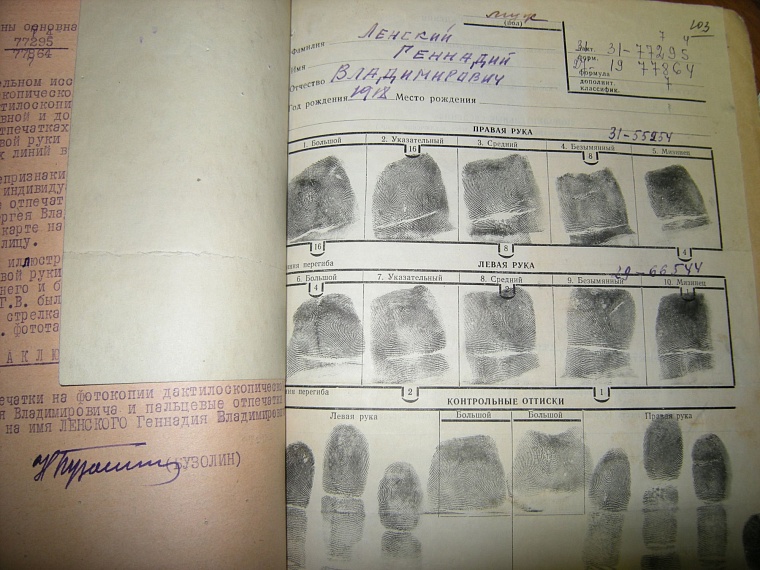 ны основна
77295
77864
ельном исс
скопическо
тилоскопи
вной и до
тпечатках
вой руки
х линий в
епризнаки
индивиду
е отпечат
ргея Влад
карте на
лицу.
иллюстр
вой руки
него и б
Г.В. был
стрелка
. фотота
АКЛЮ
ечатки на фотокопии дактилоскопическо
я Владимировича и пальцевые отпечатки
на имя ЛЕНСКОГО Геннадия Владимиров
(БУЗОЛИН)
муж
(пол)
103
Фамилия ЛЕНСКИЙ
Имя ГЕННАДИЙ
Отчество ВЛАДИМИРОВИЧ
Год рождения 1918 Место рождения
7 4
31-77295
19 77864
7
форм.
формула
дополнит.
классифик.
ПРАВАЯ РУКА
31-55254
1. Большой
2. Указательный
3. Средний
4. Безымянный
5. Мизинец
16
8
16
8
4
линии перегиба
ЛЕВАЯ РУКА
29-66544
6. Большой
7. Указательный
8. Средний
9. Безымянный
10. Мизинец
4
2
1
нии перегиба
2
1
КОНТРОЛЬНЫЕ ОТТИСКИ
Левая рука
Большой
Большой
Правая рука